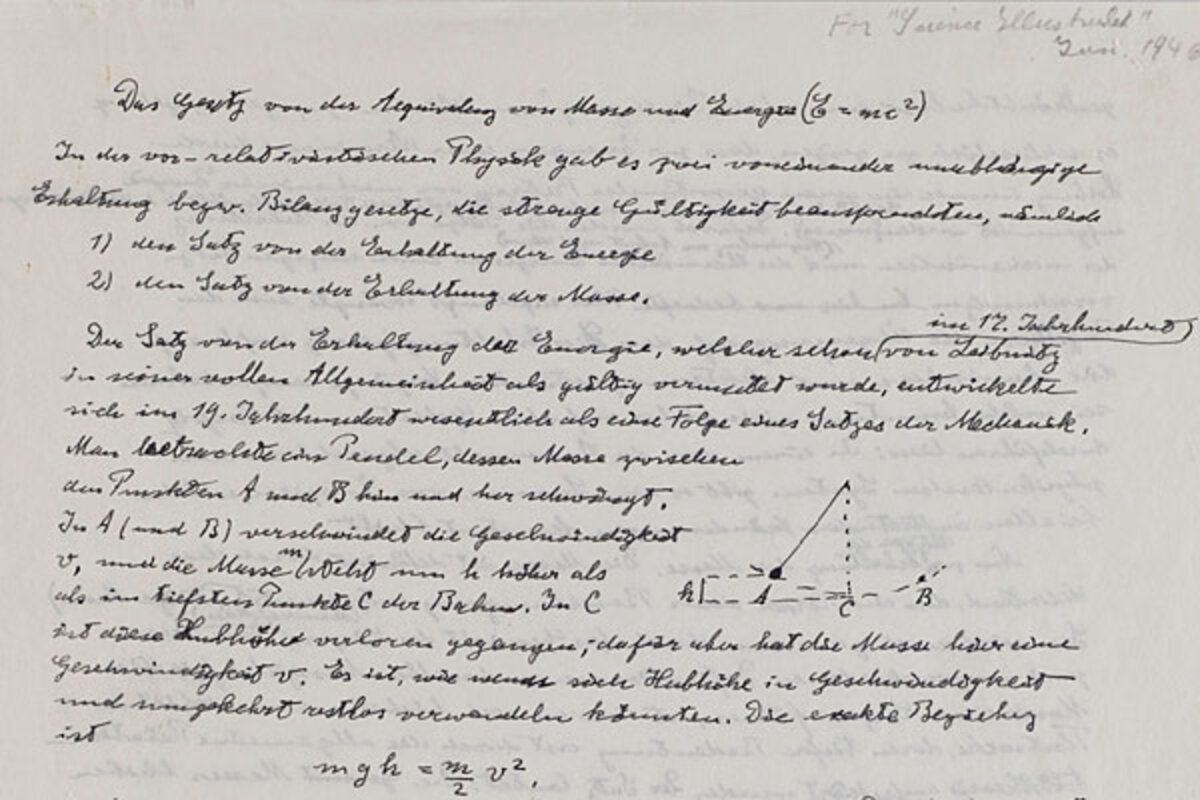 For "Science Illustrated"
Jan. 1946
Das Gesetz von der Aequivalenz von Masse und Energie (E = mc²)
In der vor-relativistischen Physik gab es zwei voneinander unabhängige
Erhaltung bezw. Bilanzgesetze, die strenge Gültigkeit beanspruchten, nämlich
1) den Satz von der Erhaltung der Energie
2) den Satz von der Erhaltung der Masse.
im 17. Jahrhundert
Der Satz von der Erhaltung der Energie, welcher schon von Leibnitz
in seiner vollen Allgemeinheit als gültig vermutet wurde, entwickelte
sich im 19. Jahrhundert wesentlich als eine Folge eines Satzes der Mechanik.
Man betrachte ein Pendel, dessen Masse zwischen
den Punkten A und B hin und her schwingt.
In A (und B) verschwindet die Geschwindigkeit
v, und die Masse m steht um h höher als
als im tiefsten Punkte C der Bahn. In C
ist diese Hubhöhe verloren gegangen; dafür aber hat die Masse hier eine
Geschwindigkeit v. Es ist, wie wenn sich Hubhöhe in Geschwindigkeit
und umgekehrt restlos verwandeln könnten. Die exakte Beziehung
ist
mgh = m/2 v².
h A C B